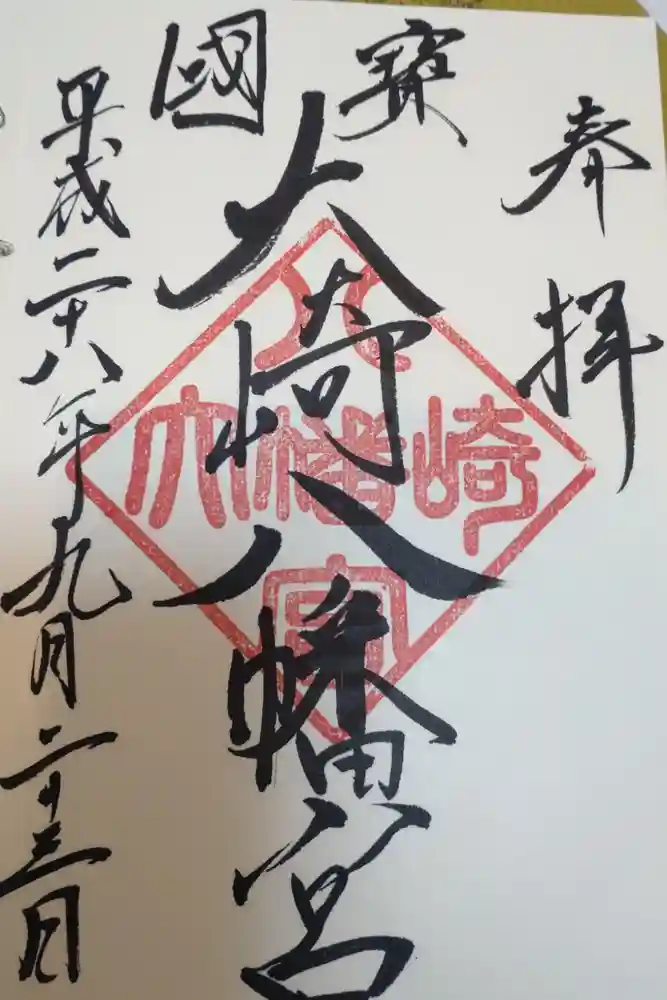 奉拝
寳國
大崎八幡宮
八
大幡崎
宮
平成二十八年九月二十三日